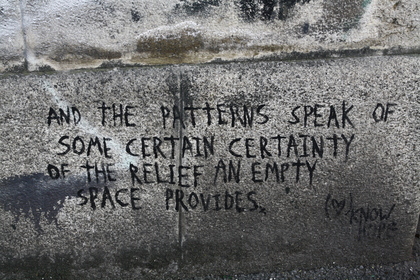 AND THE PATTERNS SPEAK OF
SOME CERTAIN CERTAINTY
OF THE RELIEF AN EMPTY
SPACE PROVIDES.
(♥) KNOW
HOPE